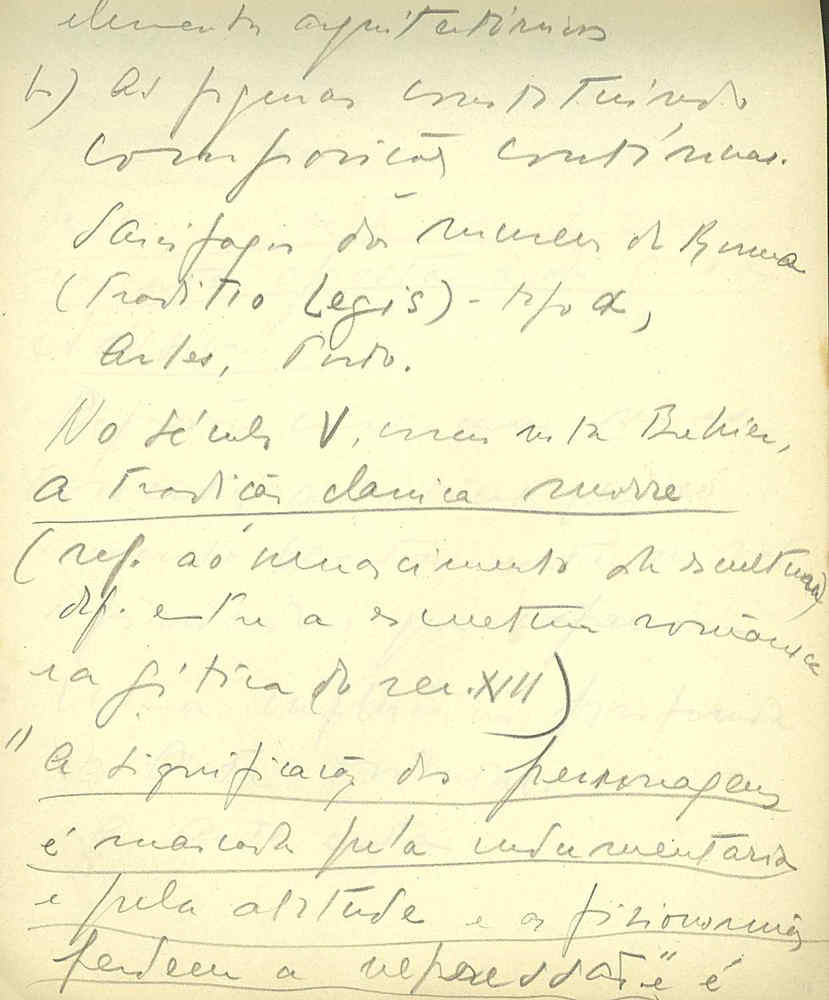 elementos arquitectónicos
b) As figuras constituindo
composições contínuas.
Sarcófagos dos museus de Roma
(Traditio Legis) - tipo α,
Arles,
No século V,
a tradição classica morre
(ref. ao renascimento da escultura
dif. entre a escultura românica
e a gótica do sec. XIII)
"A significação dos personagens
é marcada pela indumentaria
e pela atitude e as fisionomias
perdem a expressão" e é